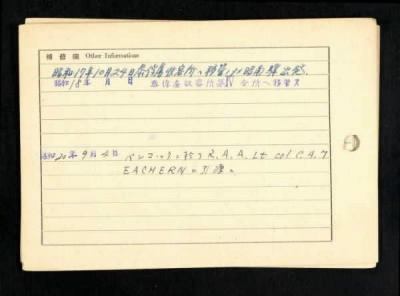 補修欄 Other Informations
昭和17年10月24日泰俘虜収容所へ移管 昭南 出発
昭和18年 月 日 泰俘虜収容所第IV分所へ移管ス
昭和20年9月4日 バンコックニ於テ R. A. A. Lt col C. A. 7
EACHERN ニ引渡